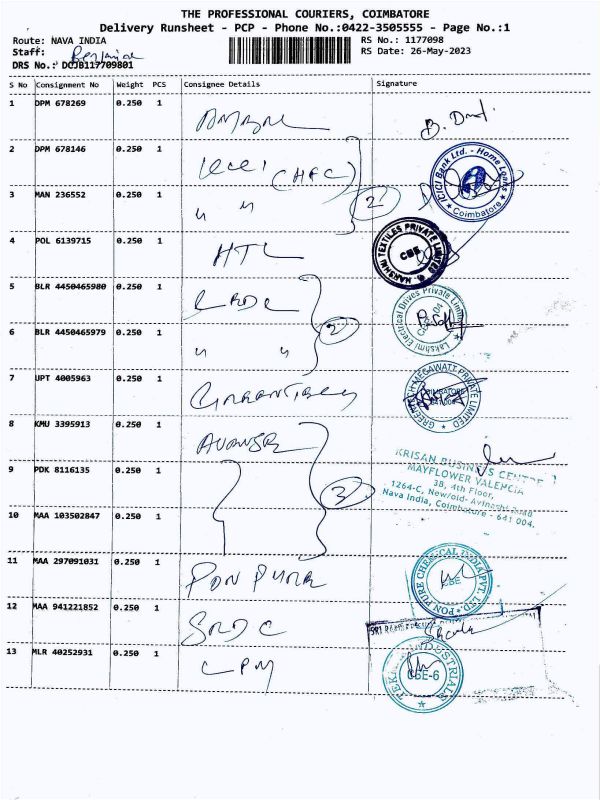 THE PROFESSIONAL COURIERS, COIMBATORE
Delivery Runsheet - PCP - Phone No.:0422-3505555 - Page No.:1
Route: NAVA INDIA RS No.: 1177098
Staff: RS Date: 26-May-2023
DRS No.: DCJB117709801
S No Consignment No Weight PCS Consignee Details Signature
1 DPM 678269 0.250 1
2 DPM 678146 0.250 1
ICICI Bank Ltd. - Home Loans
Coimbatore
(HFC)
3 MAN 236552 0.250 1 " " 2
4 POL 6139715 0.250 1 HTL
TEXTILES PRIVATE LIMITED
CBE
5 BLR 4450465980 0.250 1
Lakshmi Electrical Drives Private Limited
2
6 BLR 4450465979 0.250 1 " "
7 UPT 4005963 0.250 1
MEGAWATT PRIVATE LIMITED
8 KMU 3395913 0.250 1
KRISAN BUSINESS CENTRE
MAYFLOWER VALENCIA
9 PDK 8116135 0.250 1 3
3B, 4th Floor,
1264-C, New/old-
Nava India, Coimbatore - 641 004.
10 MAA 103502847 0.250 1
11 MAA 297091031 0.250 1 PON PURE
PON PURE CHEMICAL INDIA PVT. LTD
CBE
12 MAA 941221852 0.250 1 SRDC
SRI
13 MLR 40252931 0.250 1 CPM
INDUSTRIALS
CBE-6